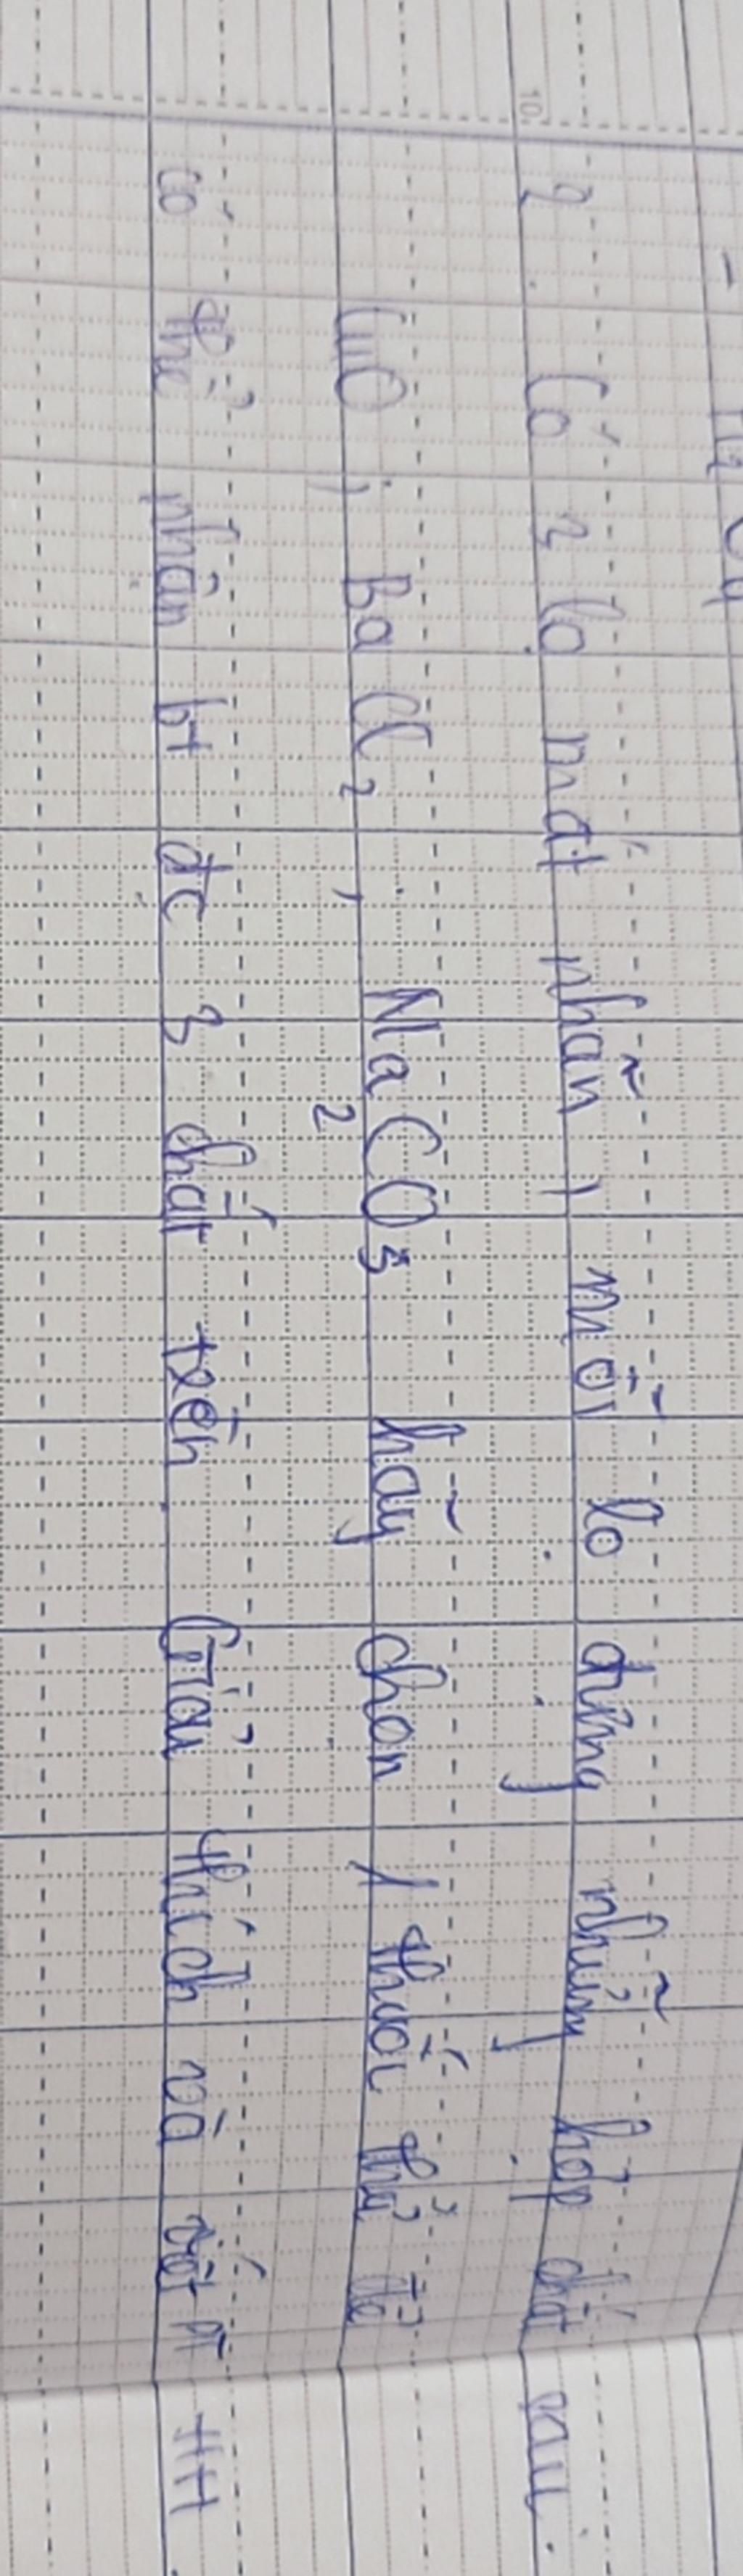 2. Có 2 lọ mất nhãn, mỗi lọ đựng những hợp chất sau.
CuO, BaCl2, Na2CO3 hãy chọn 1 thuốc thử để
có thể phân bt đc 3 chất trên. Giải thích và viết PT HH